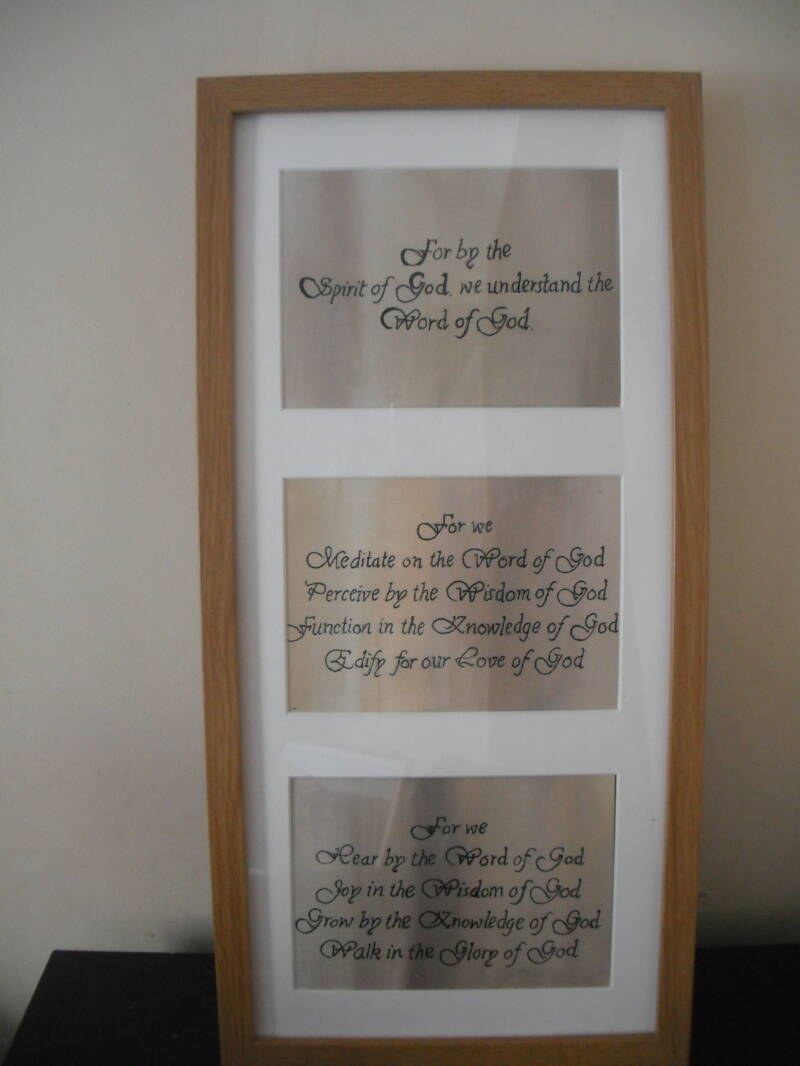 For by the
Spirit of God, we understand the
Word of God.
For we
Meditate on the Word of God
Perceive by the Wisdom of God
Function in the Knowledge of God
Edify for our Love of God
For we
Hear by the Word of God
Joy in the Wisdom of God
Grow by the Knowledge of God
Walk in the Glory of God